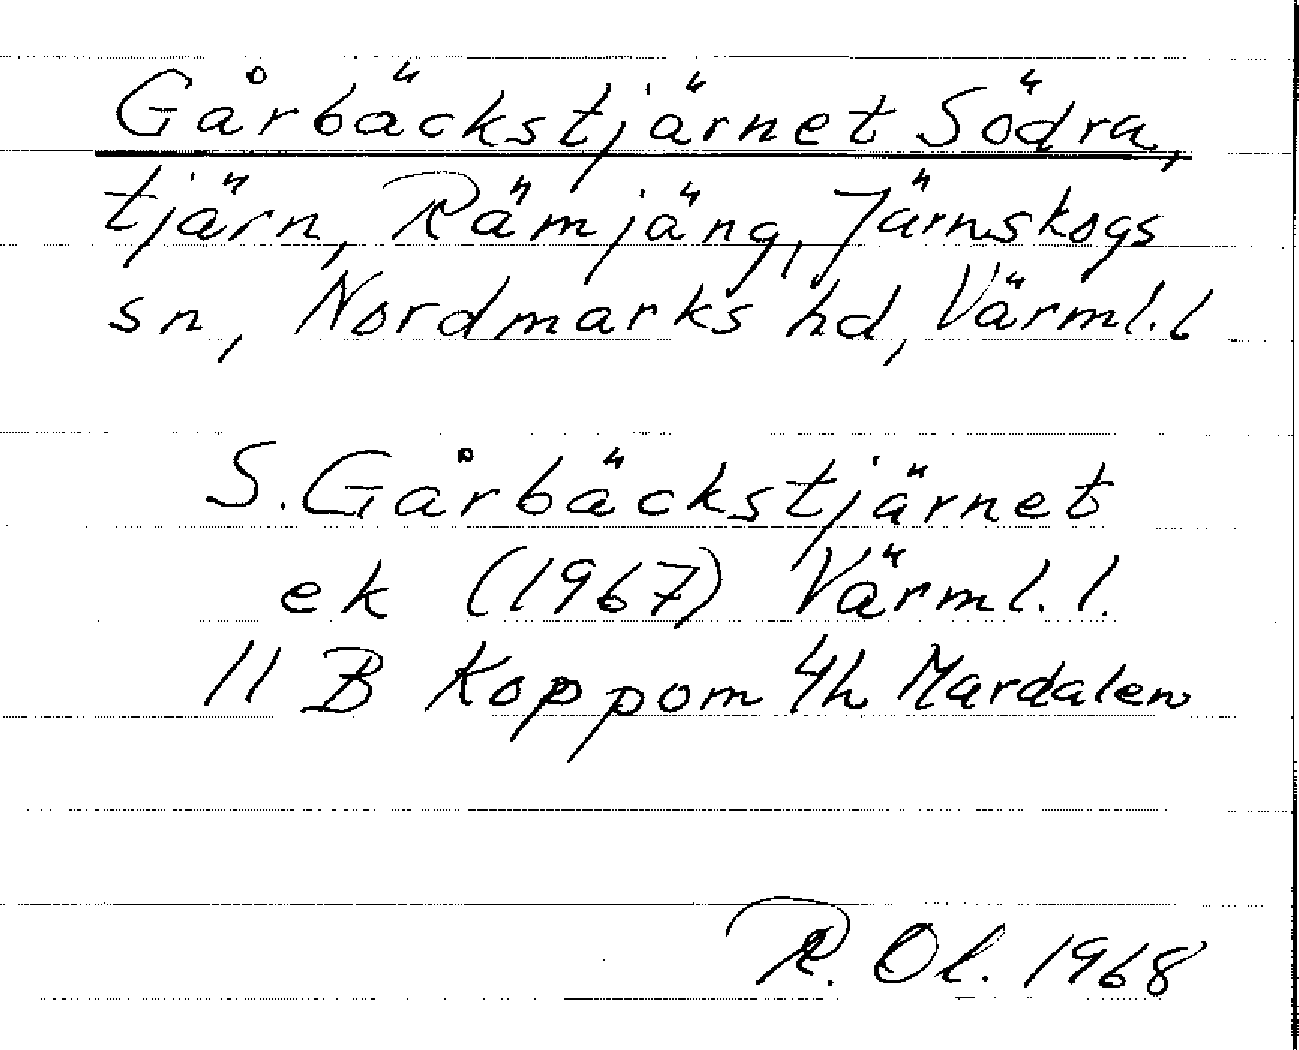 Gårbäckstjärnet Södra,
tjärn, Rämjäng, Järnskogs
sn, Nordmarks hd, Värml.l
S. Gårbäckstjärnet
ek (1967) Värml. l.
11 B Koppom 4h Mardalen
R. Ol. 1968